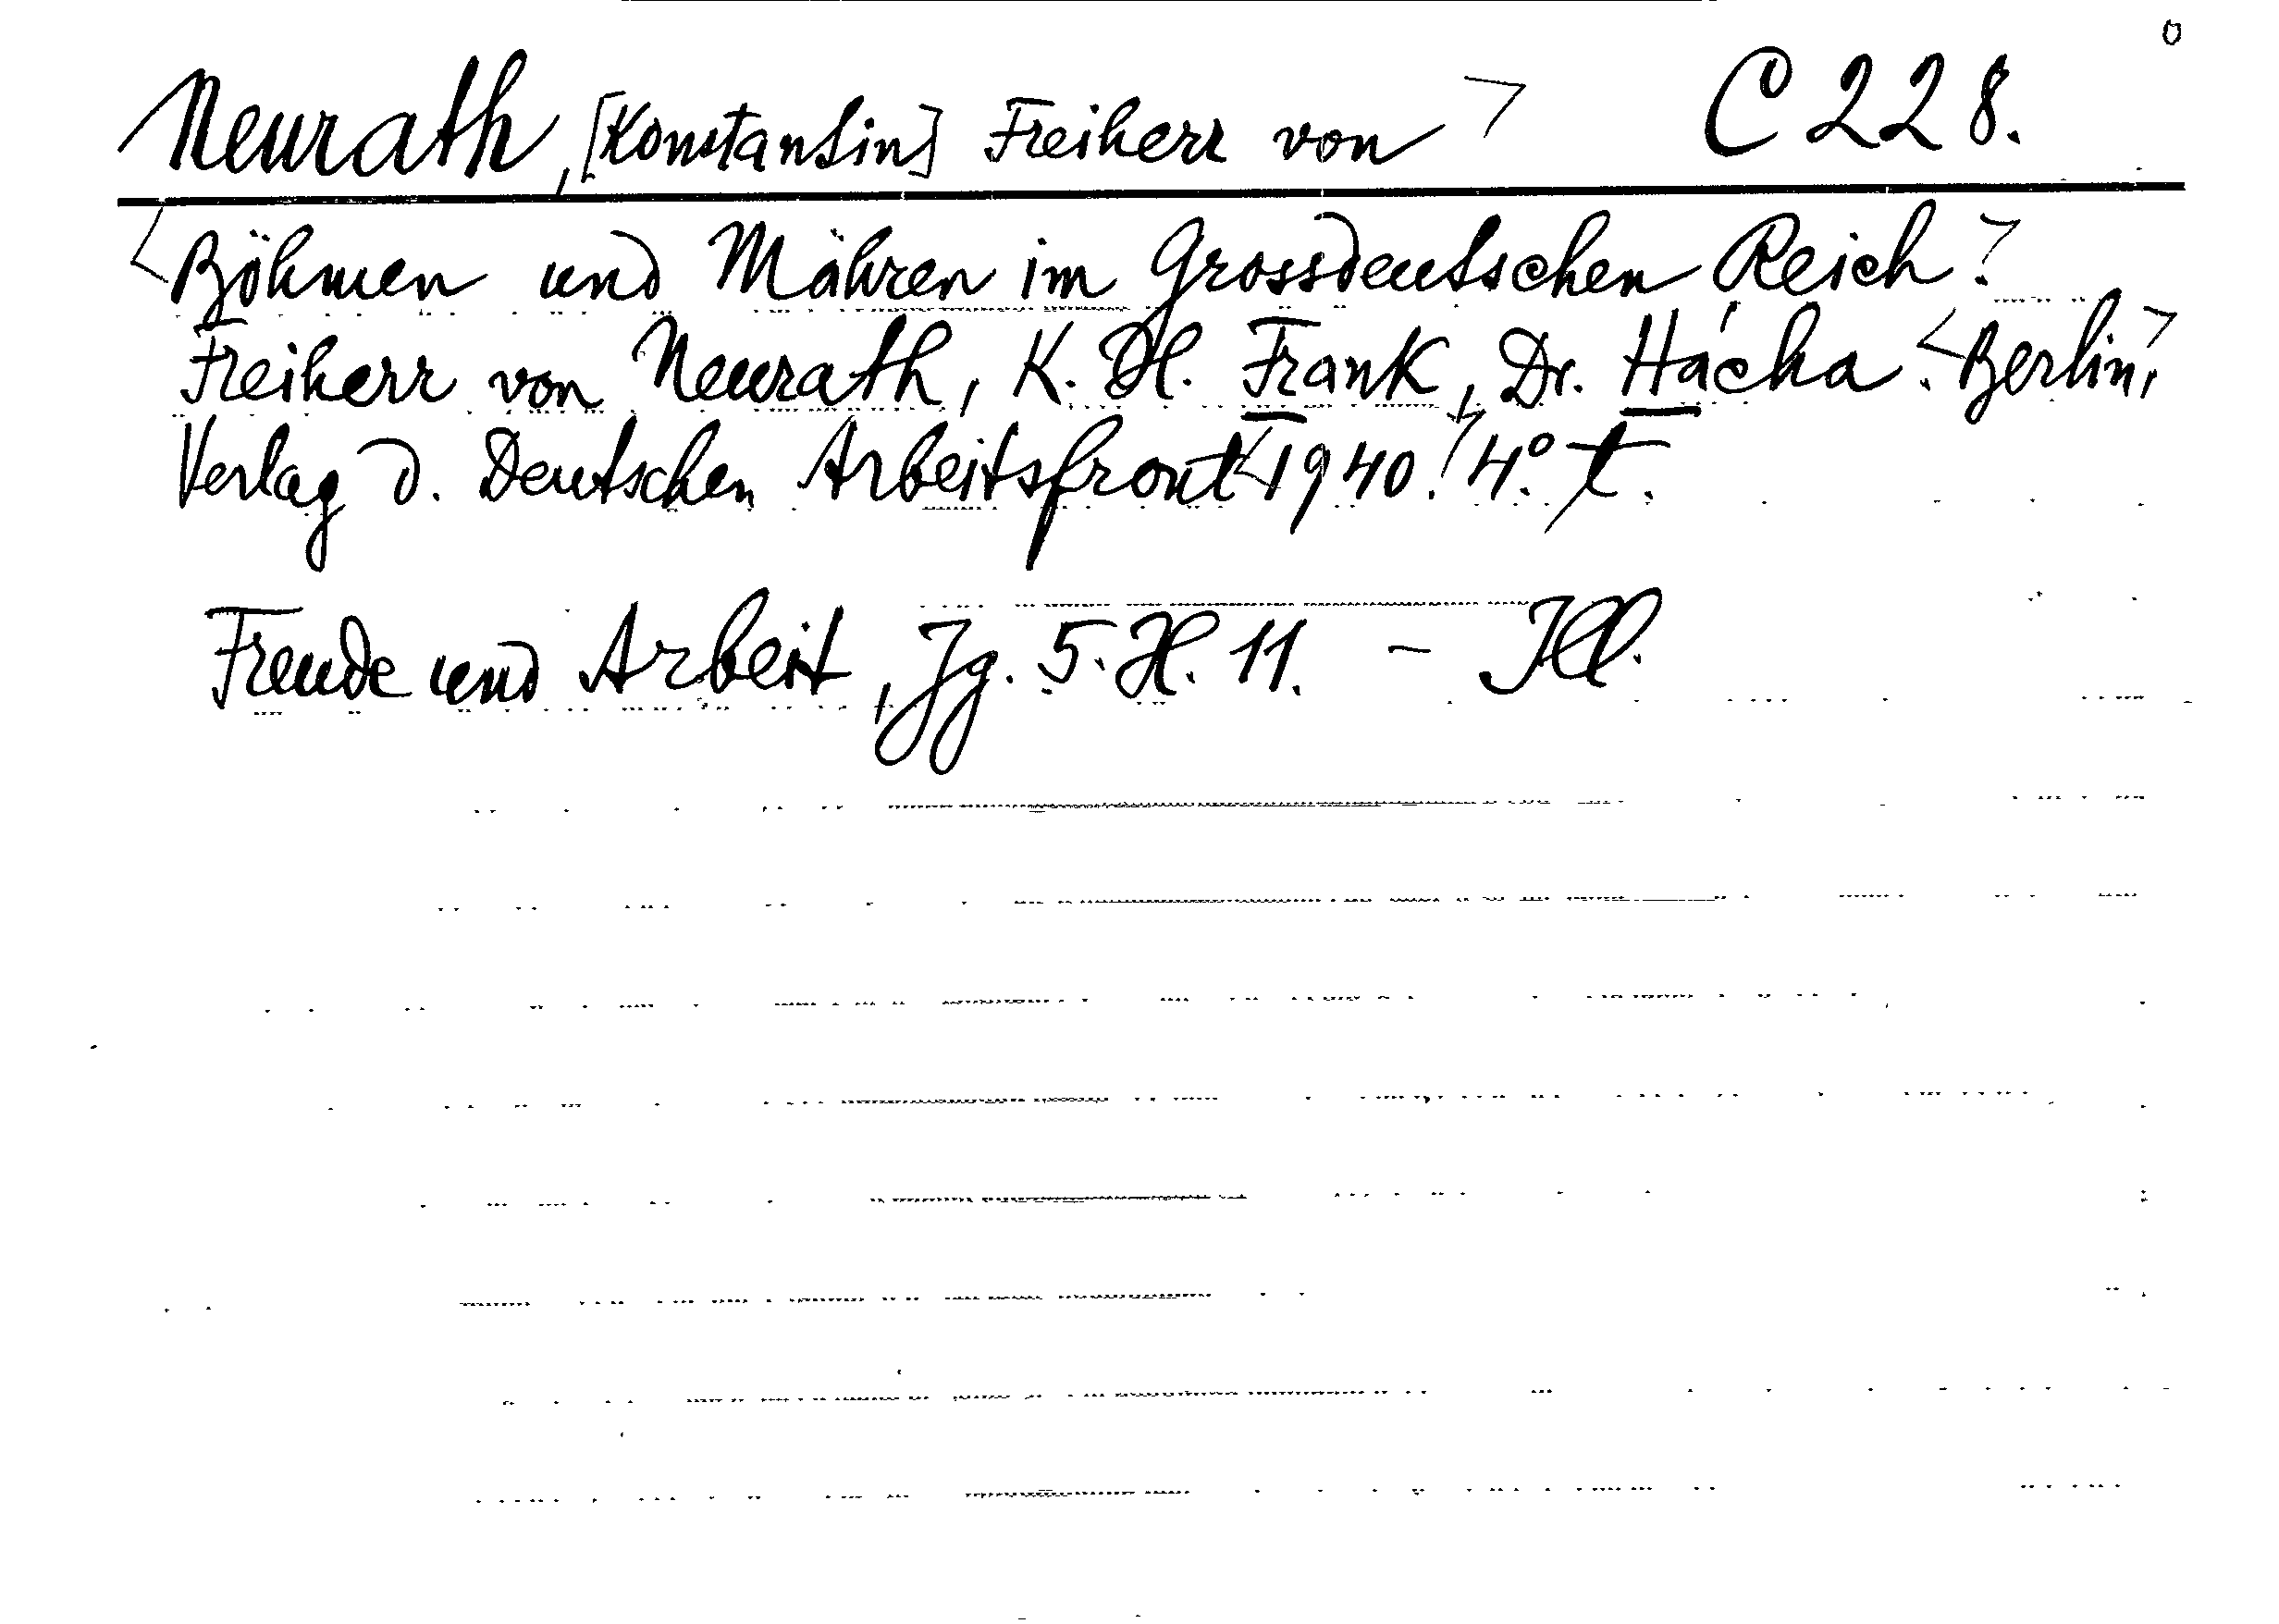 Neurath, [Konstantin] Freiherr von C 228.
Böhmen und Mähren im Grossdeutschen Reich.
Freiherr von Neurath, K. H. Frank, Dr. Hácha. Berlin,
Verlag d. Deutschen Arbeitsfront 1940. 4° t.
Freude und Arbeit, Jg. 5. H. 11. – Ill.